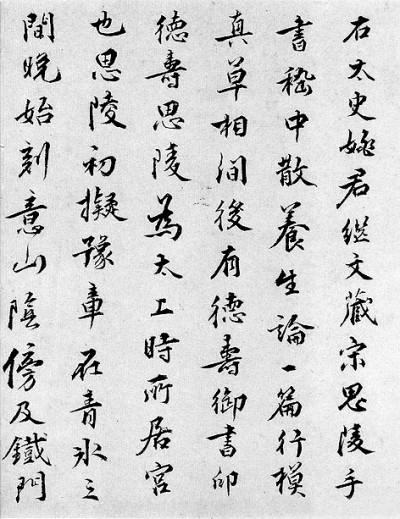 右太史姚君继文藏宋思陵手
書嵇中散養生論一篇行模
真草相間後有德壽御書印
德壽思陵為太上時所居宮
也思陵初擬豫章在青氷之
間晚始刻意山陰傍及鐵門